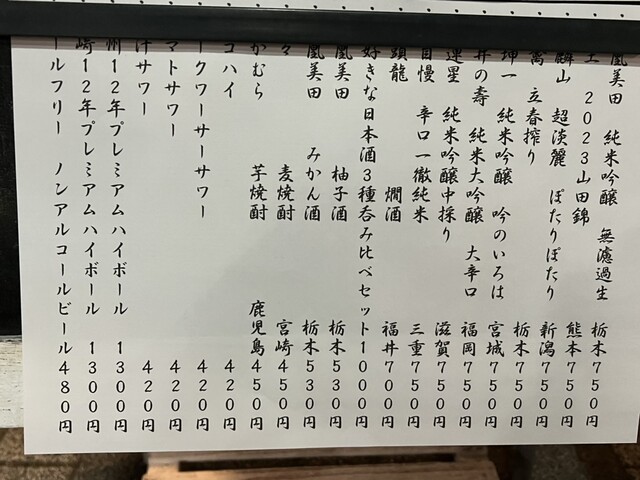 凰美田 純米吟醸 無濾過生 栃木 750円
2023山田錦 熊本 750円
麟山 超淡麗 ぽたりぽたり 新潟 750円
萬 立春搾り 栃木 750円
坤一 純米吟醸 吟のいろは 宮城 750円
井の寿 純米大吟醸 大辛口 福岡 750円
連星 純米吟醸中採り 滋賀 750円
自慢 辛口一徹純米 三重 750円
頭龍 燗酒 福井 700円
好きな日本酒3種呑み比べセット 1000円
凰美田 柚子酒 栃木 530円
凰美田 みかん酒 栃木 530円
々 麦焼酎 宮崎 450円
かむら 芋焼酎 鹿児島 450円
コハイ 420円
ークワーサーサワー 420円
マトサワー 420円
汁サワー 420円
州12年プレミアムハイボール 1300円
崎12年プレミアムハイボール 1300円
ールフリー ノンアルコールビール 480円